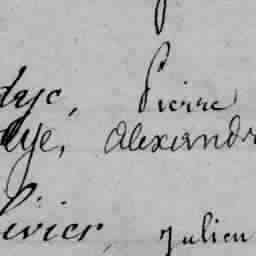 dyc, Pierre
aye, Alexandr
ivier, Julien